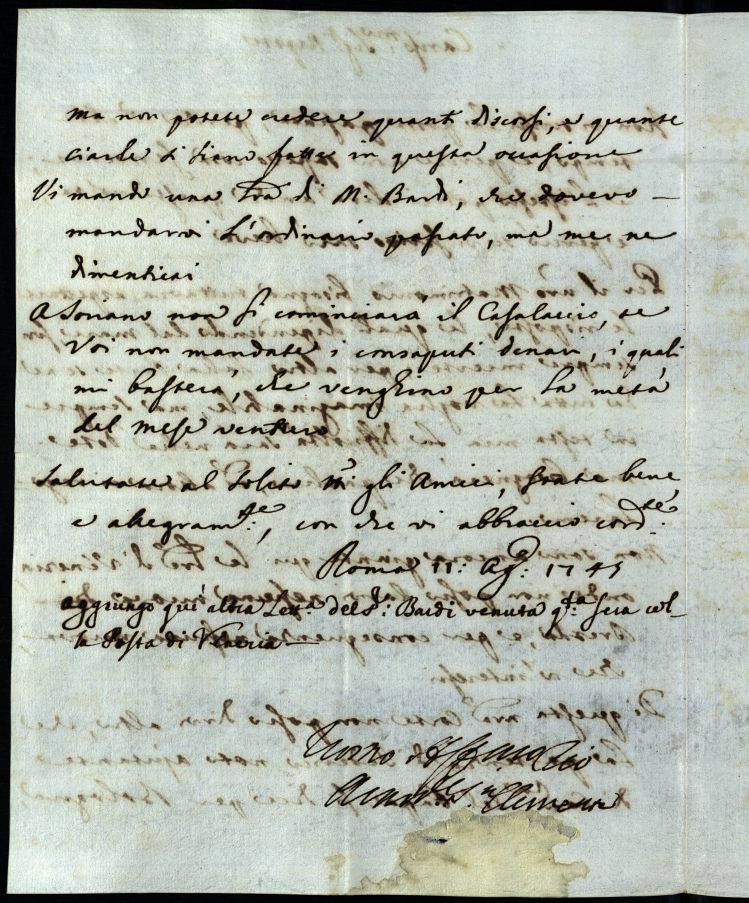 ma non potete credere quanti discorsi, e quante
ciarle si siano fatte in questa occasione
Vi mando una Lrã di M. Bardi, che dovevo
mandarvi l'ordinario passato, ma me ne
dimenticai
A Soriano non si cominciarà il Casalaccio, se
Voi non mandate i consaputi denari, i quali
mi basterà, che venghino per la metà
del mese venturo
Salutate al solito tti gli Amici, state bene,
e allegramte:, con che vi abbraccio cordte:
Roma 11: Agº: 1745
Aggiungo quì altra Letta: del Sr: Bardi venuta qta sera col-
la Posta di Venezia
Vostro Affmo Zio